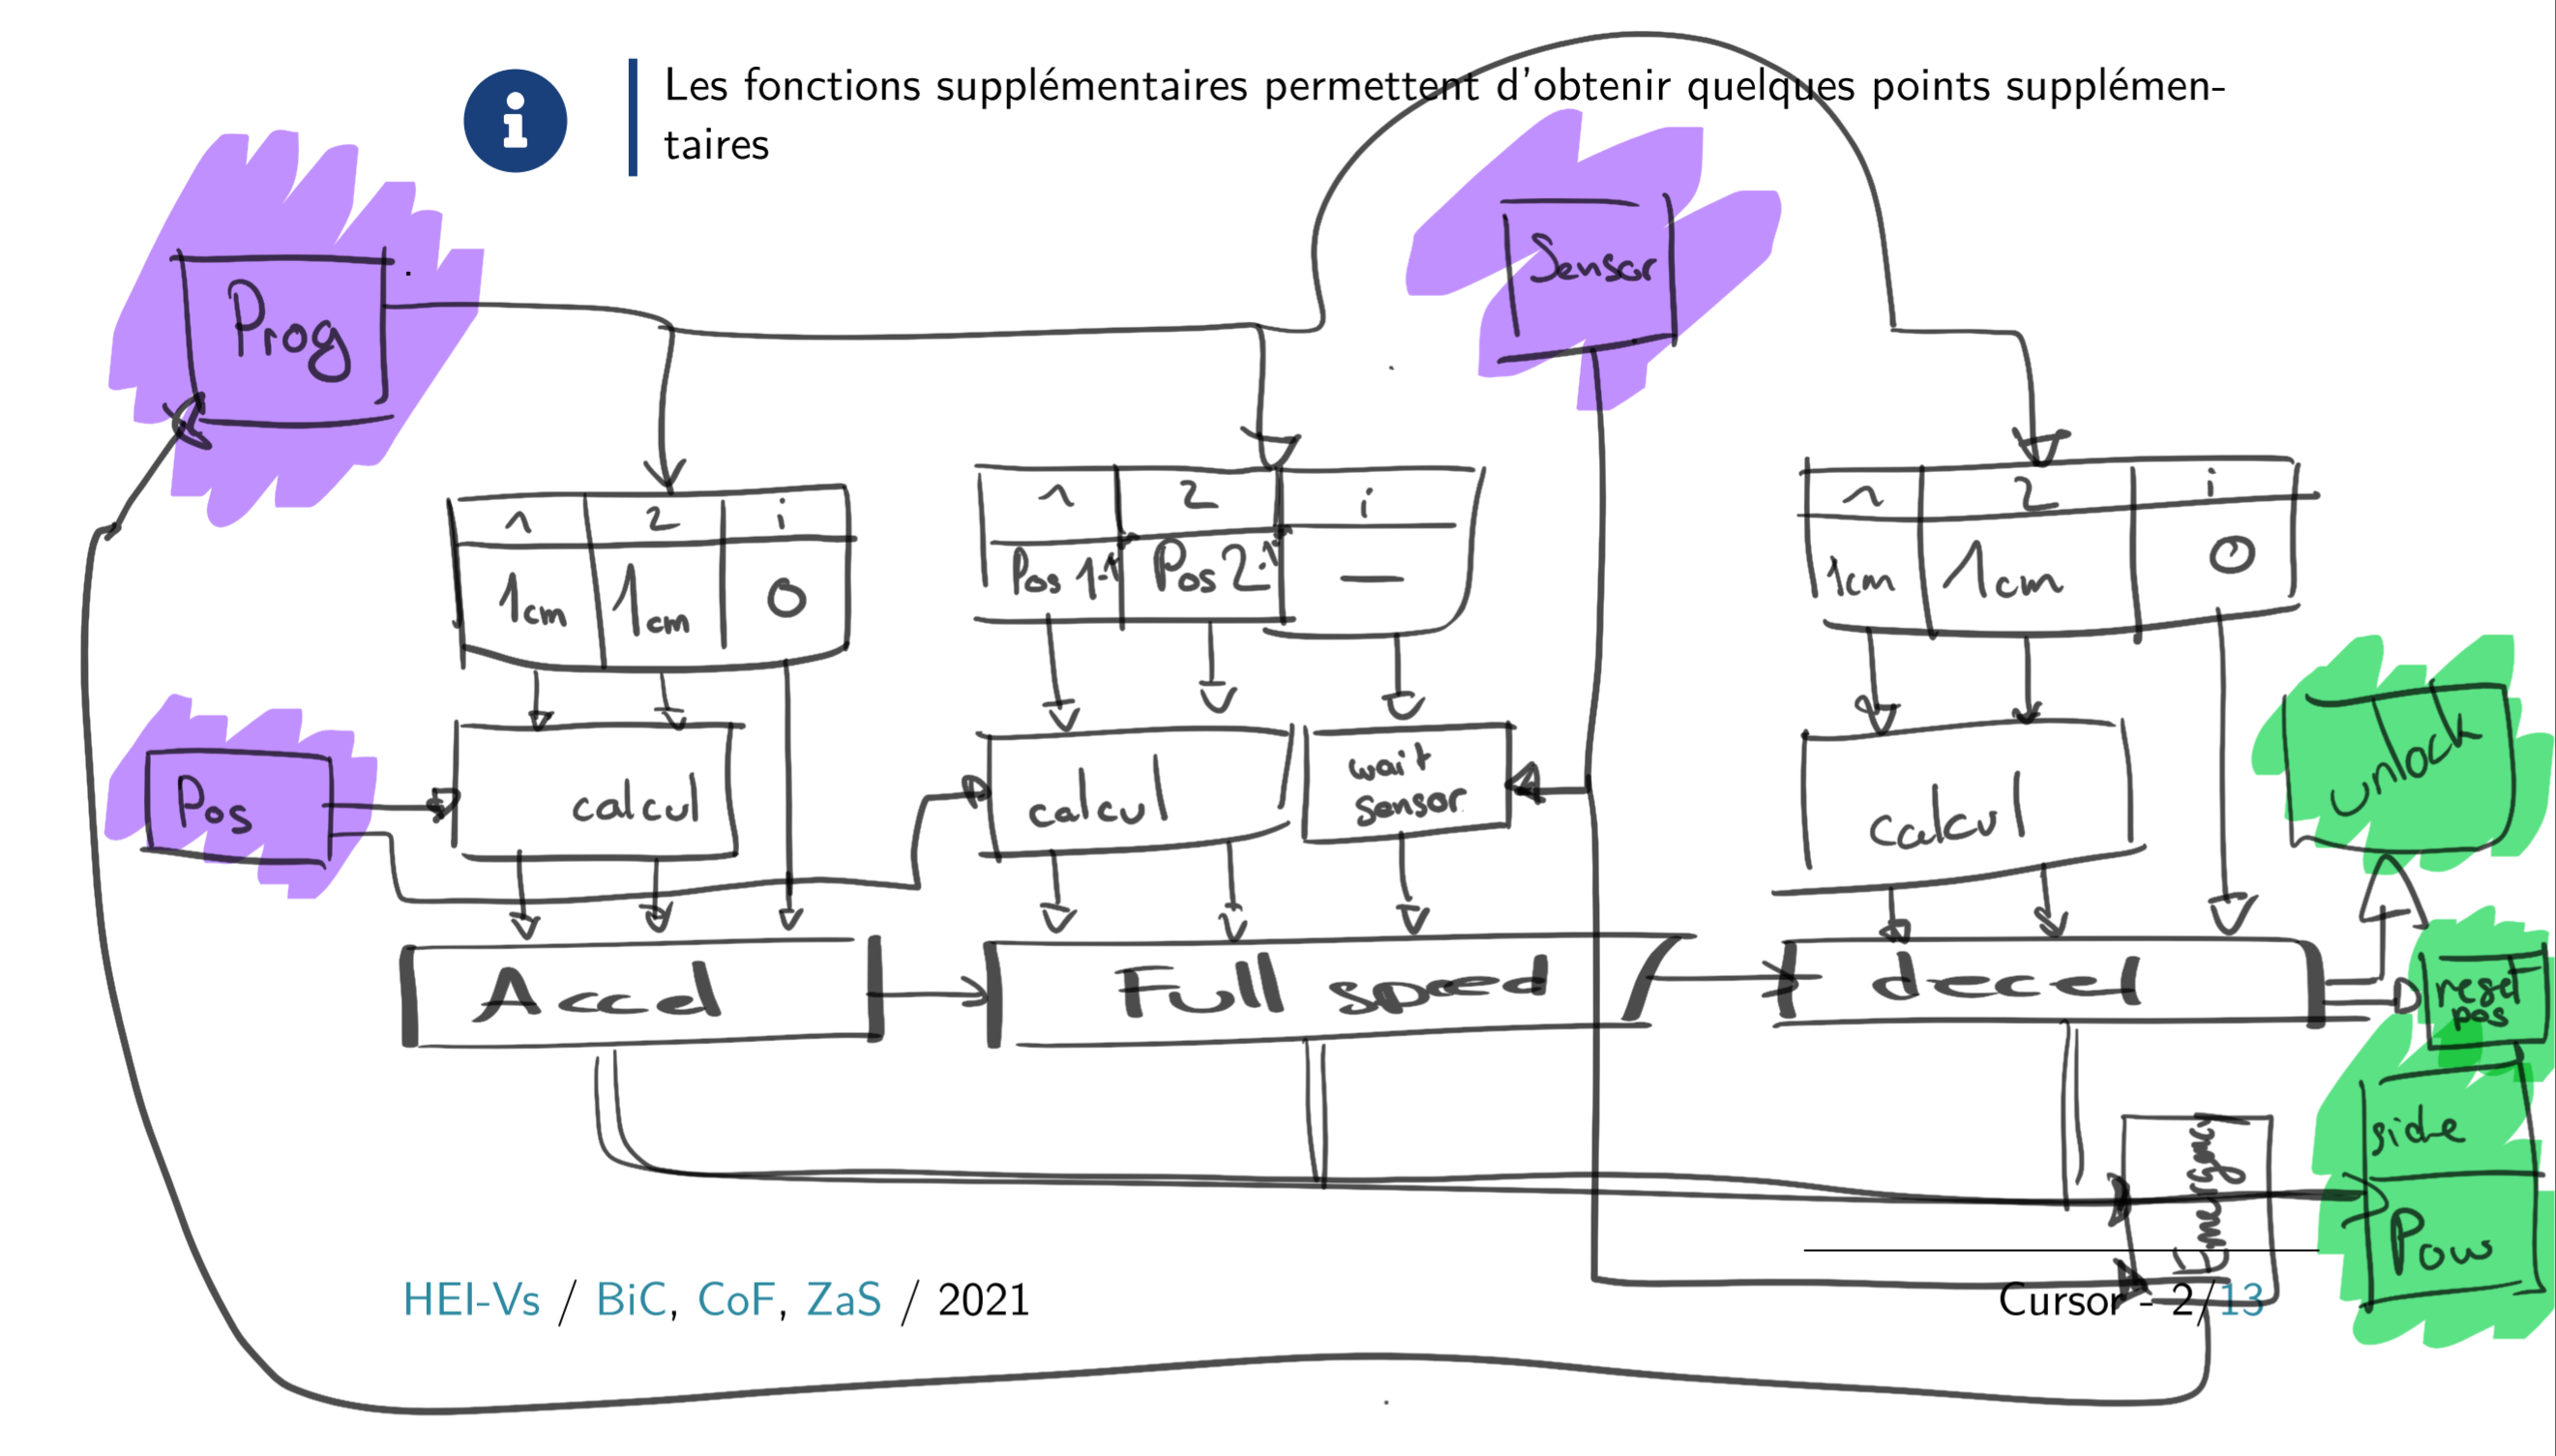 Les fonctions supplémentaires permettent d'obtenir quelques points supplémen-
taires
Prog
Sensor
1 2 i
1cm 1cm 0
1 2 i
Pos 1-1 Pos 2-1 —
1 2 i
1cm 1cm 0
Pos
calcul
calcul
wait
sensor
calcul
unlock
Accel
Full speed
decel
reset
pos
side
Pow
Emergency
HEI-Vs / BiC, CoF, ZaS / 2021
Cursor - 2/13